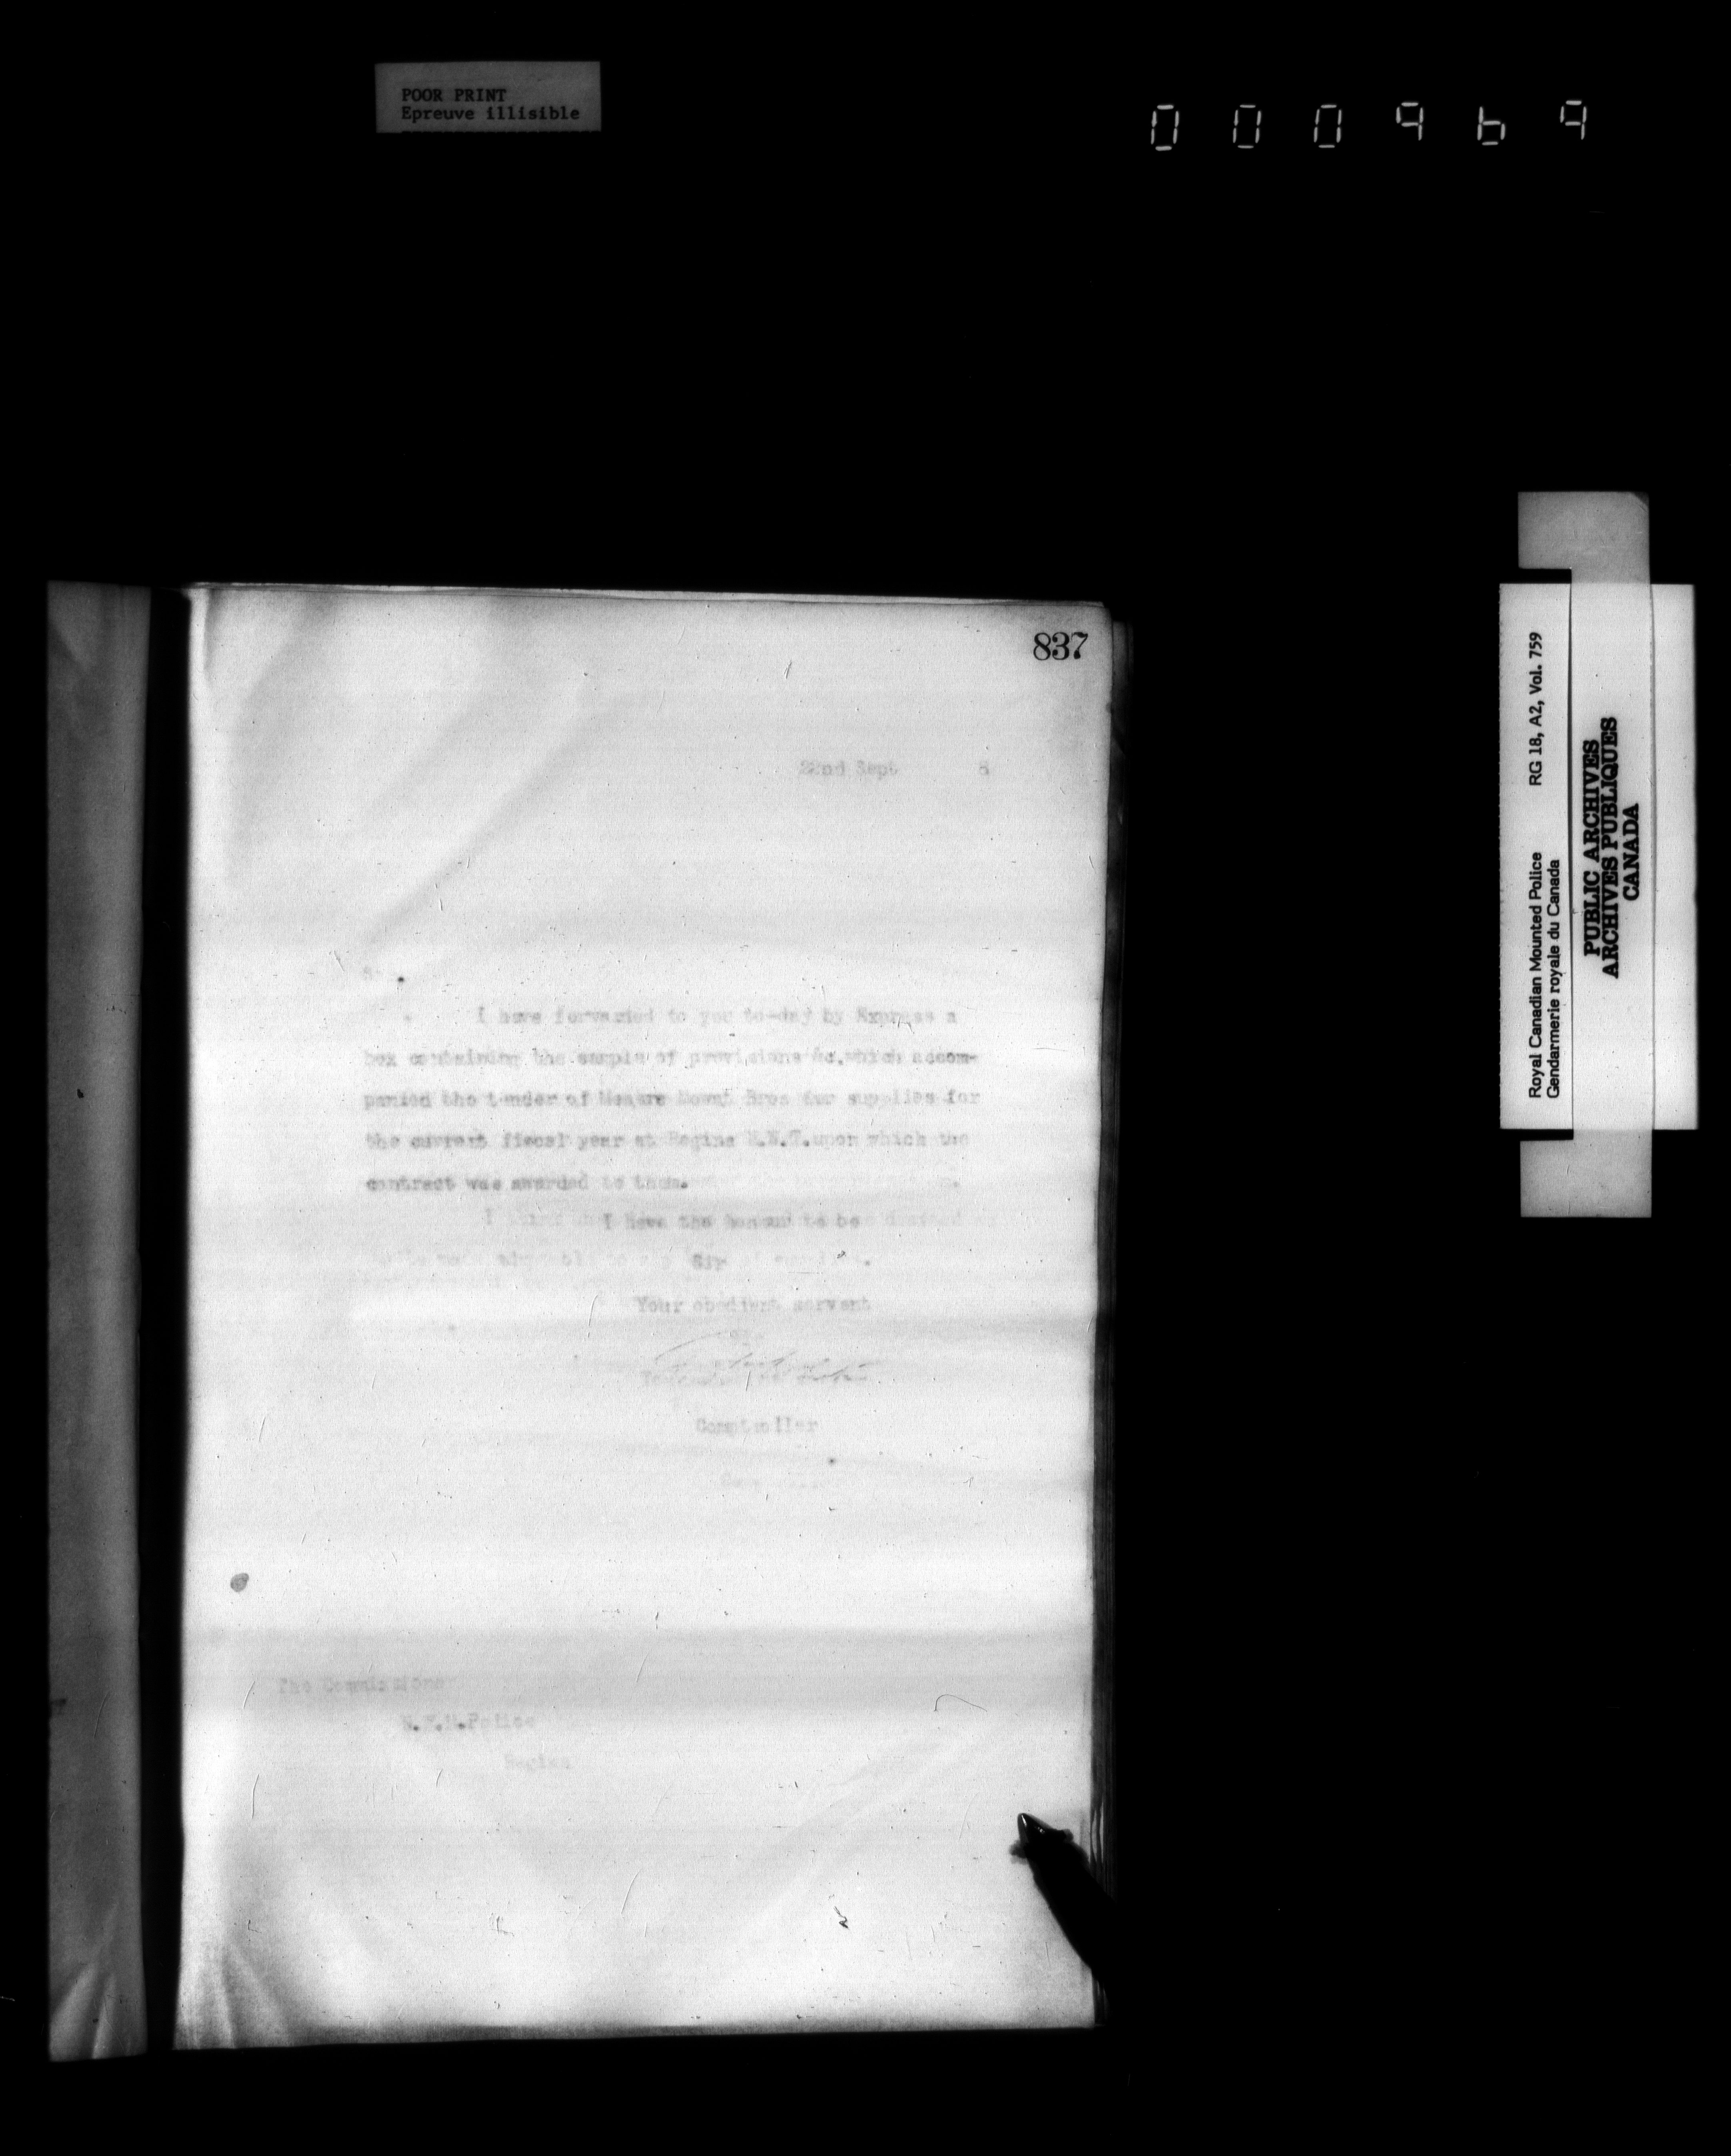 POOR PRINT
Epreuve illisible
000969
837
22nd Sept 8
I have forwarded to you to-day by Express a
box containing the sample of provisions &c.which accom-
panied the tender of Messrs Mowat Bros for supplies for
the current fiscal year at Regina N.W.T.upon which the
contract was awarded to them.
I have the honour to be
Sir
Your obedient servant
Comptroller
The Commissioner
N.W.M.Police
Regina
Royal Canadian Mounted Police RG 18, A2, Vol. 759
Gendarmerie royale du Canada
PUBLIC ARCHIVES
ARCHIVES PUBLIQUES
CANADA